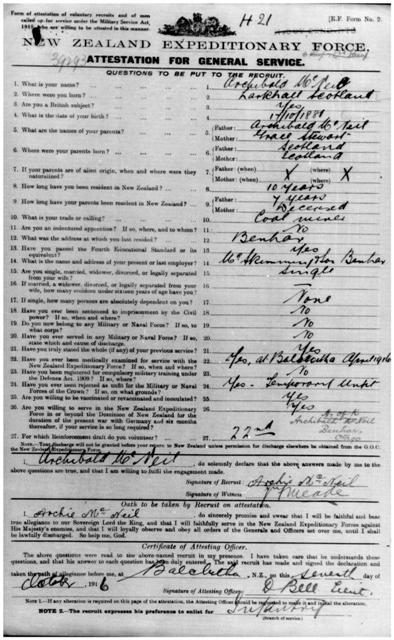 Form of attestation of voluntary recruits and of men
called up for service under the Military Service Act,
1916, who are willing to be attested in this manner.
H 21
[E.F. Form No. 2.
NEW ZEALAND EXPEDITIONARY FORCE.
ATTESTATION FOR GENERAL SERVICE.
QUESTIONS TO BE PUT TO THE RECRUIT.
1. What is your name? ... 1. Archibald McNeil
2. Where were you born? ... 2. Larkhall Scotland
3. Are you a British subject? ... 3. Yes
4. What is the date of your birth? ... 4. 17/10/1881
5. What are the names of your parents? ... 5. Father: Archibald McNeil
Mother: Grace Stewart
6. Where were your parents born? ... 6. Father: Scotland
Mother: Scotland
7. If your parents are of alien origin, when and where were they naturalized? 7. Father (when) X (where) X
Mother (when) (where)
8. How long have you been resident in New Zealand? ... 8. 10 years
9. How long have your parents been resident in New Zealand? ... 9. Father: 7 years
Mother: Deceased
10. What is your trade or calling? ... 10. Coal miner
11. Are you an indentured apprentice? If so, where, and to whom? 11. No
12. What was the address at which you last resided? ... 12. Benhar
13. Have you passed the Fourth Educational Standard or its equivalent? 13. Yes
14. What is the name and address of your present or last employer? 14. McSkimming & Son Benhar
15. Are you single, married, widower, divorced, or legally separated from your wife? 15. Single
16. If married, a widower, divorced, or legally separated from your wife, how many children under sixteen years of age have you? 16. —
17. If single, how many persons are absolutely dependent on you? 17. None
18. Have you ever been sentenced to imprisonment by the Civil power? If so, when and where? 18. No
19. Do you now belong to any Military or Naval Force? If so, to what corps? 19. No
20. Have you ever served in any Military or Naval Force? If so, state which and cause of discharge. 20. No
21. Have you truly stated the whole (if any) of your previous service? 21. Yes
22. Have you ever been medically examined for service with the New Zealand Expeditionary Force? If so, when and where? 22. Yes, at Balclutha April 1916
23. Have you been registered for compulsory military training under the Defence Act, 1909? If so, where? 23. No
24. Have you ever been rejected as unfit for the Military or Naval Forces of the Crown? If so, on what grounds? 24. Yes - Temporarily Unfit
25. Are you willing to be vaccinated or revaccinated and inoculated? 25. Yes
26. Are you willing to serve in the New Zealand Expeditionary Force in or beyond the Dominion of New Zealand for the duration of the present war with Germany and six months thereafter, if your service is so long required? 26. Yes
Archibald McNeil
Benhar
Otago
27. For which Reinforcement draft do you volunteer? ... 27. 22nd
NOTE.—Your discharge will not be granted before your return to New Zealand unless permission for discharge elsewhere be obtained from the G.O.C. the New Zealand Expeditionary Force.
I, Archibald McNeil, do solemnly declare that the above answers made by me to the above questions are true, and that I am willing to fulfil the engagement made.
Signature of Recruit Archie McNeil
Signature of Witness J Meade
Oath to be taken by Recruit on attestation.
I, Archie McNeil do sincerely promise and swear that I will be faithful and bear true allegiance to our Sovereign Lord the King, and that I will faithfully serve in the New Zealand Expeditionary Forces against His Majesty's enemies, and that I will loyally observe and obey all orders of the Generals and Officers set over me, until I shall be lawfully discharged. So help me, God.
Certificate of Attesting Officer.
The above questions were read to the above-named recruit in my presence. I have taken care that he understands these questions, and that his answer to each question has been duly entered. The said recruit has made and signed the declaration and taken the oath of allegiance before me, at Balclutha, N.Z., on this Seventh day of October, 1916
Signature of Attesting Officer: D Bell Lieut.
NOTE 1.—If any alteration is required on this page of the attestation, the Attesting Officer should be requested to make it and initial the alteration.
NOTE 2.—The recruit expresses his preference to enlist for Infantry
(Branch of service.)